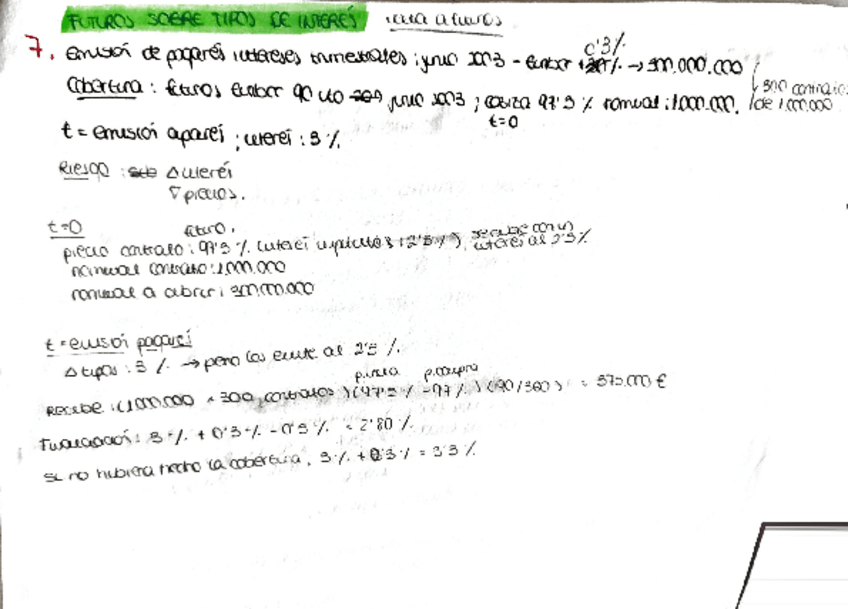 FUTUROS SOBRE TIPOS DE INTERÉS
7. Emisión de pagarés intereses trimestrales: junio 2003 - Euribor + 0'3% → 300.000.000
300 contratos de 1.000.000
Cobertura: futuros Euribor 90 junio 2003; cotiza 97'5% nominal: 1.000.000.
t=0
t = emisión pagaré; interés: 3%
Riesgo: Δ interés
∇ precios.
t=0
futuro.
precio contrato: 97'5% (interés implícito: 2'5%)
interés al 2'5%
nominal contrato: 1.000.000
nominal a cubrir: 300.000.000
t = emisión pagarés
Δ tipos: 3% → pero los emite al 2'5%.
p. venta p. compra
Recibe: (1.000.000 × 300 contratos) (97'5% - 97%) (90/360) = 375.000 €
Financiación: 3% + 0'3% - 0'5% = 2'80%
Si no hubiera hecho la cobertura, 3% + 0'3% = 3'3%